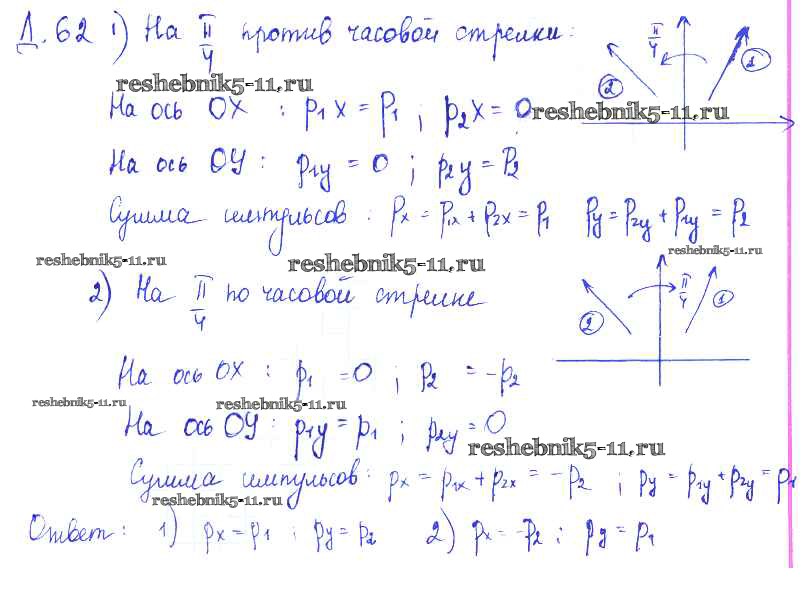 Д.62 1) На π/4 против часовой стрелки:
π/4 1 2
reshebnik5-11.ru
На ось OX : p₁x = p₁ ; p₂x = 0
reshebnik5-11.ru
На ось OY : p₁y = 0 ; p₂y = P₂
Сумма импульсов : Px = p₁x + p₂x = p₁ Py = p₂y + p₁y = p₂
reshebnik5-11.ru reshebnik5-11.ru reshebnik5-11.ru
2) На π/4 по часовой стрелке
π/4 1 2
На ось OX : p₁ = 0 ; p₂ = -p₂
reshebnik5-11.ru reshebnik5-11.ru
На ось OY : p₁y = p₁ ; p₂y = 0
reshebnik5-11.ru
Сумма импульсов : px = p₁x + p₂x = -p₂ ; py = p₁y + p₂y = p₁
reshebnik5-11.ru
Ответ : 1) px = p₁ ; py = p₂ 2) px = -p₂ ; py = p₁